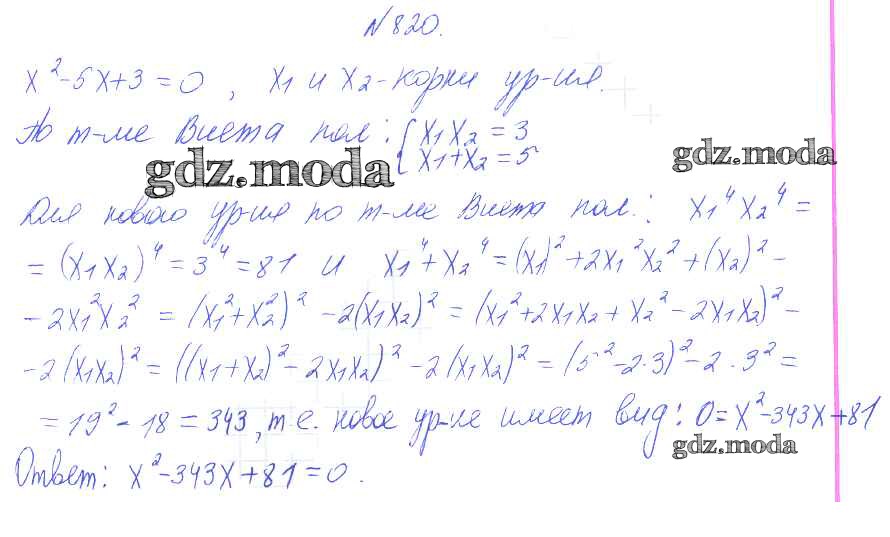 N 820.
x²-5x+3=0, x₁ и x₂-корни ур-ия.
По т-ме Виета пол: { x₁x₂ = 3
x₁+x₂ = 5
gdz.moda
gdz.moda
Для нового ур-ия по т-ме Виета пол.: x₁⁴x₂⁴ =
= (x₁x₂)⁴ = 3⁴ = 81 и x₁⁴+x₂⁴ = (x₁)²+2x₁²x₂²+(x₂)² -
- 2x₁²x₂² = (x₁²+x₂²)² - 2(x₁x₂)² = (x₁²+2x₁x₂+x₂²-2x₁x₂)² -
-2(x₁x₂)² = ((x₁+x₂)² - 2x₁x₂)² - 2(x₁x₂)² = (5²-2·3)²-2·3² =
= 19² - 18 = 343, т.е. новое ур-ие имеет вид: 0=x²-343x+81
gdz.moda
Ответ: x²-343x+81=0.